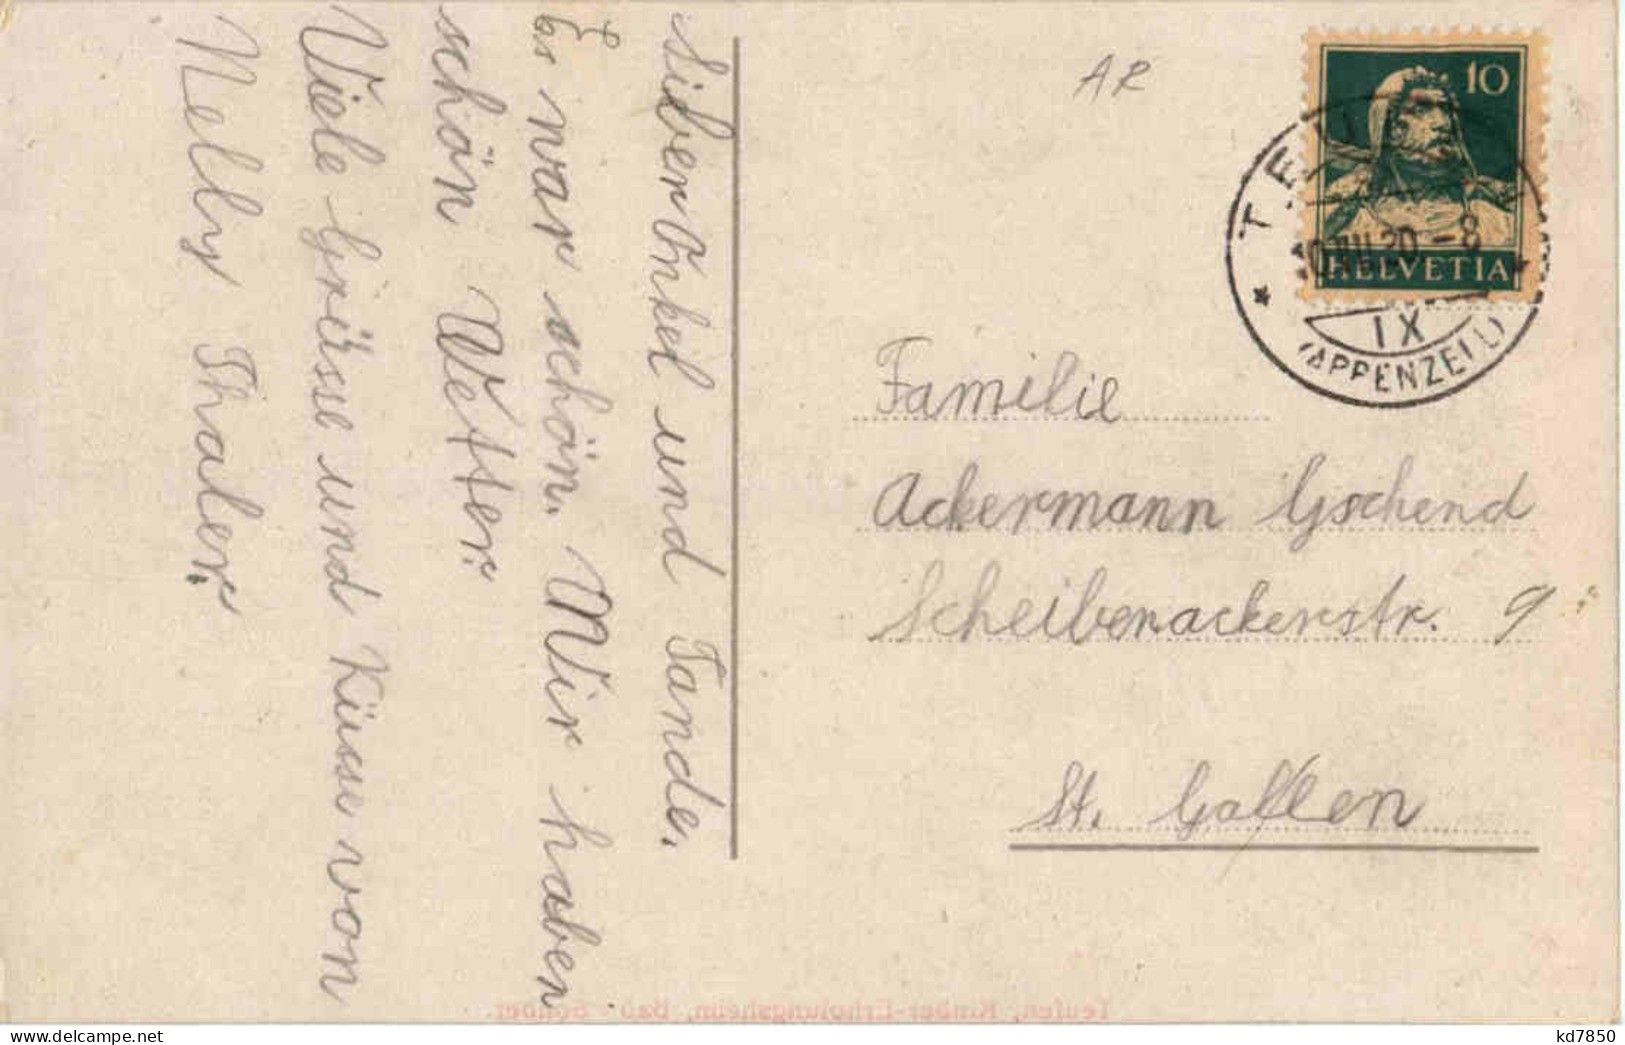 Siber Onkel und Tande.
Es war schön. Mir haben
schön Wetter.
Viele Grüsse und Küsse von
Nelly Thaler.
AR
10
HELVETIA
* TEUFEN *
IX
(APPENZELL)
Familie
Ackermann Gschend
Scheibenackerstr. 9
St. Gallen
Teufen, Kinder-Erholungsheim, Bad Sonder.
kd7850